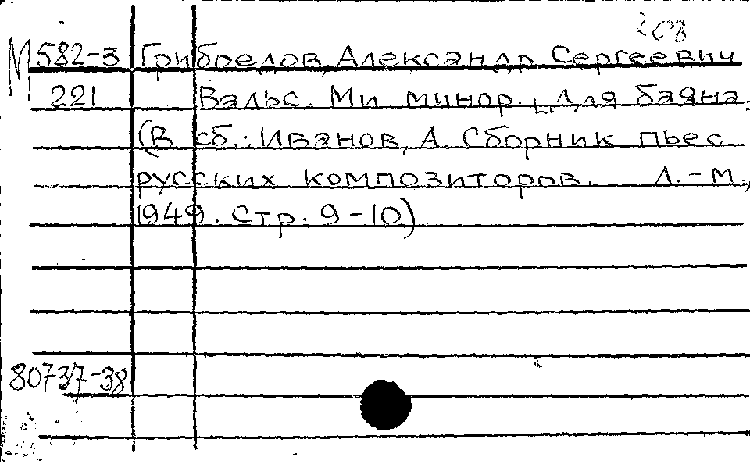 М 582-3 Грибоедов, Александр Сергеевич
221 Вальс. Ми минор. Для баяна.
(В сб.: Иванов, А. Сборник пьес
русских композиторов. Л.-М.,
1949. Стр. 9-10)
80737-38